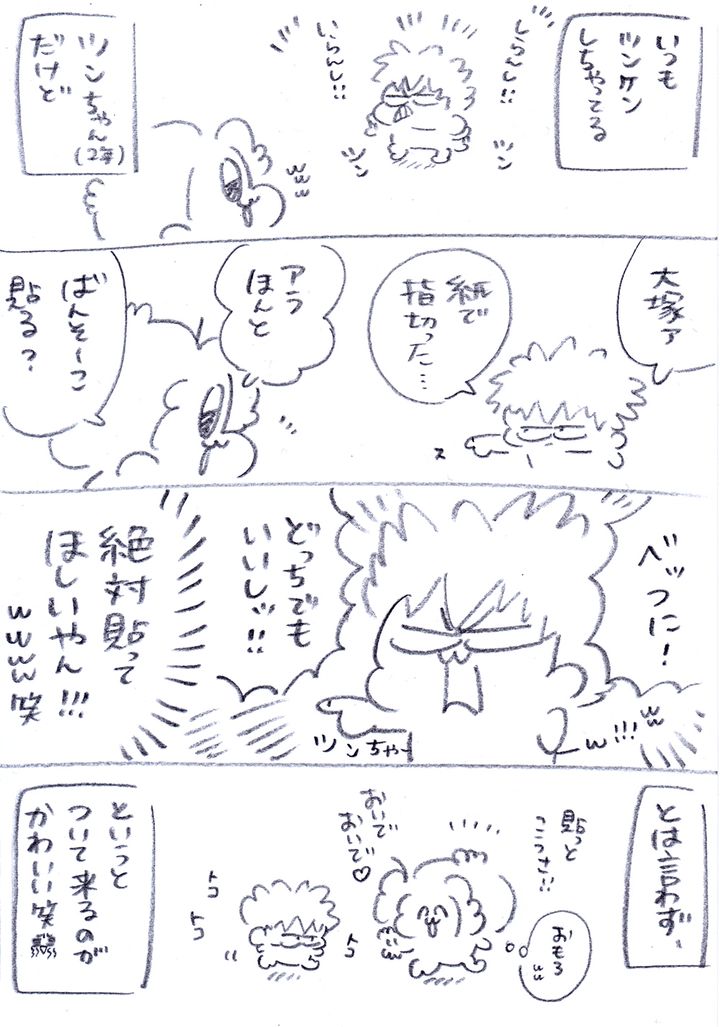 いつも
ツンケン
しちゃってる
しらんし!!
いらんし!!
ツン
ツン
ツンちゃん
(2年)
だけど
www
大塚ァ
紙で
指切った…
アラ
ほんと
ばんそーこ
貼る?
ス
べッつに!
どっちでも
いいしッ!!
ww
w!!!
ツンちゃー
絶対貼って
ほしいやん!!!
wwww笑
とは言わず、
貼っと
こうさ!!
おもろ
ww
おいで
おいで♡
トコ
トコ
トコ
というと
ついて来るのが
かわいい笑